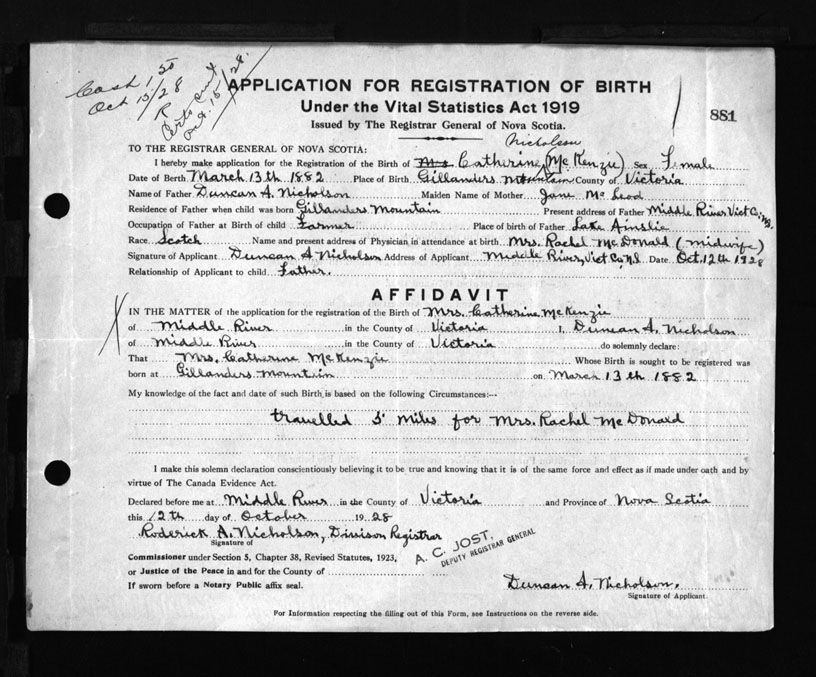 Cash 1.50
Oct 15/28
R
Certs sent
Oct. 15/28.
APPLICATION FOR REGISTRATION OF BIRTH
Under the Vital Statistics Act 1919
881
Issued by The Registrar General of Nova Scotia.
TO THE REGISTRAR GENERAL OF NOVA SCOTIA:
Nicholson
I hereby make application for the Registration of the Birth of Mrs. Catherine (McKenzie) Sex Female
Date of Birth March 13th 1882 Place of Birth Gillanders Mountain County of Victoria
Name of Father Duncan A. Nicholson Maiden Name of Mother Jane McLeod
Residence of Father when child was born Gillanders Mountain Present address of Father Middle River Vict Co; N.S.
Occupation of Father at Birth of child Farmer Place of birth of Father Lake Ainslie
Race Scotch Name and present address of Physician in attendance at birth Mrs. Rachel McDonald (midwife)
Signature of Applicant Duncan A Nicholson Address of Applicant Middle River, Vict Co, N.S Date Oct. 12th 1928
Relationship of Applicant to child Father.
AFFIDAVIT
IN THE MATTER of the application for the registration of the Birth of Mrs. Catherine McKenzie
of Middle River in the County of Victoria I, Duncan A. Nicholson
of Middle River in the County of Victoria do solemnly declare:
That Mrs. Catherine McKenzie Whose Birth is sought to be registered was
born at Gillanders Mountain on March 13th 1882
My knowledge of the fact and date of such Birth is based on the following Circumstances:--
travelled 5 miles for Mrs. Rachel McDonald
I make this solemn declaration conscientiously believing it to be true and knowing that it is of the same force and effect as if made under oath and by
virtue of The Canada Evidence Act.
Declared before me at Middle River in the County of Victoria and Province of Nova Scotia
this 12th day of October 1928
Roderick A. Nicholson, Divison Registrar
Signature of
A. C. JOST,
DEPUTY REGISTRAR GENERAL
Commissioner under Section 5, Chapter 38, Revised Statutes, 1923,
or Justice of the Peace in and for the County of
If sworn before a Notary Public affix seal.
Duncan A. Nicholson.
Signature of Applicant
For Information respecting the filling out of this Form, see Instructions on the reverse side.